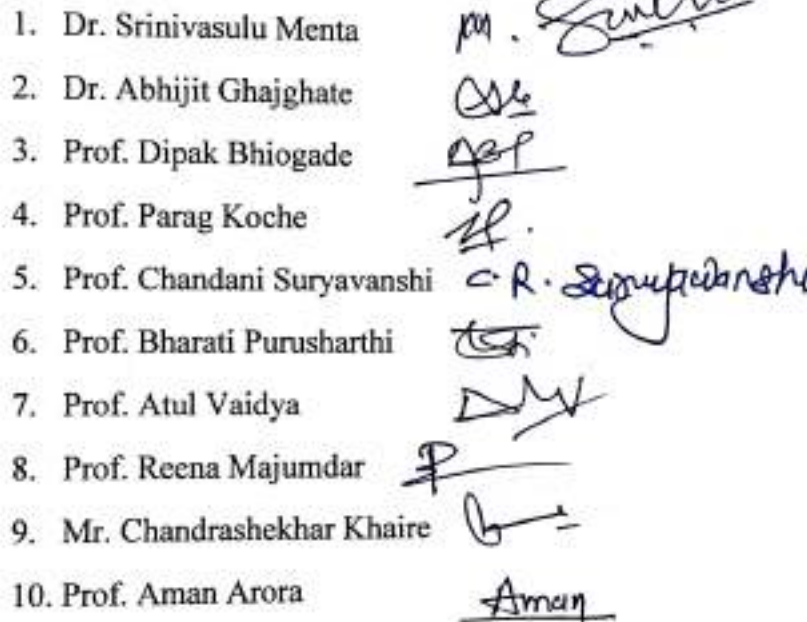 1. Dr. Srinivasulu Menta M.
2. Dr. Abhijit Ghajghate
3. Prof. Dipak Bhiogade
4. Prof. Parag Koche
5. Prof. Chandani Suryavanshi C.R. Suryawanshi
6. Prof. Bharati Purusharthi
7. Prof. Atul Vaidya
8. Prof. Reena Majumdar
9. Mr. Chandrashekhar Khaire
10. Prof. Aman Arora Aman